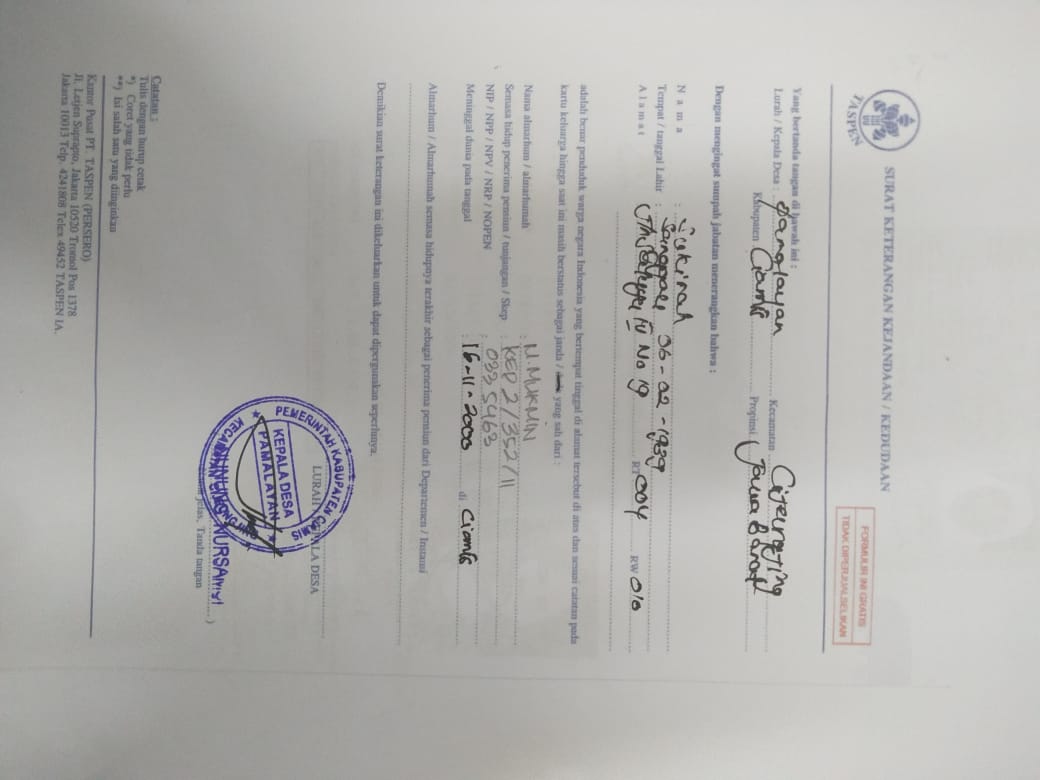 TASPEN
SURAT KETERANGAN KEJANDAAN / KEDUDAAN
FORMULIR INI GRATIS
TIDAK DIPERJUALBELIKAN
Yang bertanda tangan di bawah ini :
Lurah / Kepala Desa : Kecamatan
Kabupaten Ciamis Propinsi Jawa Barat
Dengan mengingat sumpah jabatan menerangkan bahwa :
N a m a :
Tempat / tanggal Lahir : 06-02-1939
A l a m a t : IV No 19 RT 004 RW 010
adalah benar penduduk warga negara Indonesia yang bertempat tinggal di alamat tersebut di atas dan sesuai catatan pada
kartu keluarga hingga saat ini masih berstatus sebagai janda / yang sah dari :
Nama almarhum / almarhumah : M. MUKMIN
Semasa hidup penerima pensiun / tunjangan / Skep : KEP 2/352/11
NIP / NPP / NPV / NRP / NOPEN : 033 5463
Meninggal dunia pada tanggal : 16-11-2000 di Ciamis
Almarhum / Almarhumah semasa hidupnya terakhir sebagai penerima pensiun dari Departemen / Instansi
Demikian surat keterangan ini dikeluarkan untuk dapat dipergunakan seperlunya.
LURAH / KEPALA DESA
PEMERINTAH KABUPATEN CIAMIS
KEPALA DESA
PAMALAYAN
NURSAMSI
jelas, Tanda tangan )
Catatan :
Tulis dengan hurup cetak
*) Coret yang tidak perlu
**) Isi salah satu yang diinginkan
Kantor Pusat PT. TASPEN (PERSERO)
Jl. Letjen Suprapto, Jakarta 10520 Tromol Pos 1378
Jakarta 10013 Telp. 4241808 Telex 49452 TASPEN IA.